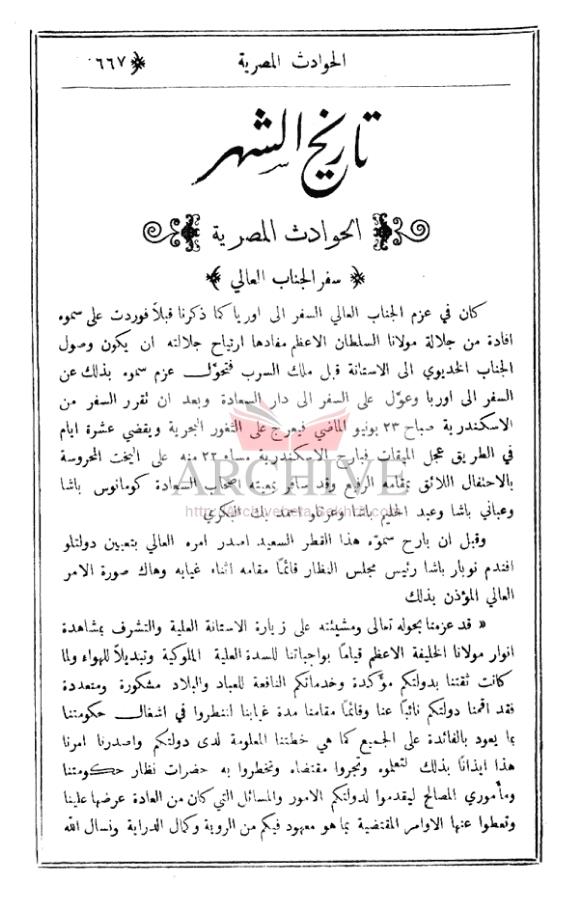 الحوادث المصرية ٦٦٧
تاريخ الشهر
الحوادث المصرية
سفر الجناب العالي
كان في عزم الجناب العالي السفر الى اوربا كما ذكرنا قبلاً فوردت على سموه
افادة من جلالة مولانا السلطان الاعظم مفادها ارتياح جلالته ان يكون وصول
الجناب الخديوي الى الاستانة قبل ملك السرب فتحوّل عزم سموه بذلك عن
السفر الى اوربا وعوّل على السفر الى دار السعادة وبعد ان تقرر السفر من
الاسكندرية صباح ٢٣ يونيو الماضي فيعرج على الثغور البحرية ويقضي عشرة ايام
في الطريق عجل الميقات فبارح الاسكندرية مساء ٢٢ منه على اليخت المحروسة
بالاحتفال اللائق بمقامه الرفيع وقد سافر بمعيته اصحاب السعادة كومانوس باشا
وعباني باشا وعبد الحليم باشا وعزتلو احمد بك البكري
وقبل ان بارح سموّه هذا القطر السعيد اصدر امره العالي بتعيين دولتلو
افندم نوبار باشا رئيس مجلس النظار قائمًا مقامه اثناء غيابه وهاك صورة الامر
العالي المؤذن بذلك
« قد عزمنا بحوله تعالى ومشيئته على زيارة الاستانة العلية والتشرف بمشاهدة
انوار مولانا الخليفة الاعظم قيامًا بواجباتنا للسدة العلية الملوكية وتبديلاً للهواء ولما
كانت ثقتنا بدولتكم مؤكدة وخدماتكم النافعة للعباد والبلاد مشكورة ومتعددة
فقد اقمنا دولتكم نائبًا عنا وقائمًا مقامنا مدة غيابنا لتنظروا في اشغال حكومتنا
بما يعود بالفائدة على الجميع كما هي خطتنا المعلومة لدى دولتكم واصدرنا امرنا
هذا ايذانًا بذلك لتعلموه وتجروا مقتضاه وتخطروا به حضرات نظار حكومتنا
ومأموري المصالح ليقدموا لدولتكم الامور والمسائل التي كان من العادة عرضها علينا
وتعطوا عنها الاوامر المقتضية بما هو معهود فيكم من الروية وكمال الدراية ونسال الله
ARCHIVE
http://Archivebeta.Sakhrit.com